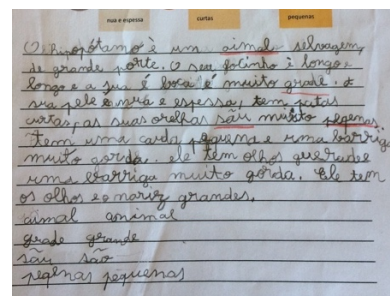 nua e espessa curtas pequenas
O hipopótamo è um aimal selvagem,
de grande porte. O seu focinho è longo e
longo e a sua é boca é muito grade. A
sua pele e nua e espessa, tem patas
curtas, as suas orelhas sãu muito pegenas.
tem uma cauda pequena e uma barriga
muito gorda. ele tem olhos
uma barriga muito gorda. Ele tem
os olhos e o nariz grandes.
aimal animal
grade grande
sãu são
pegenas pequenas